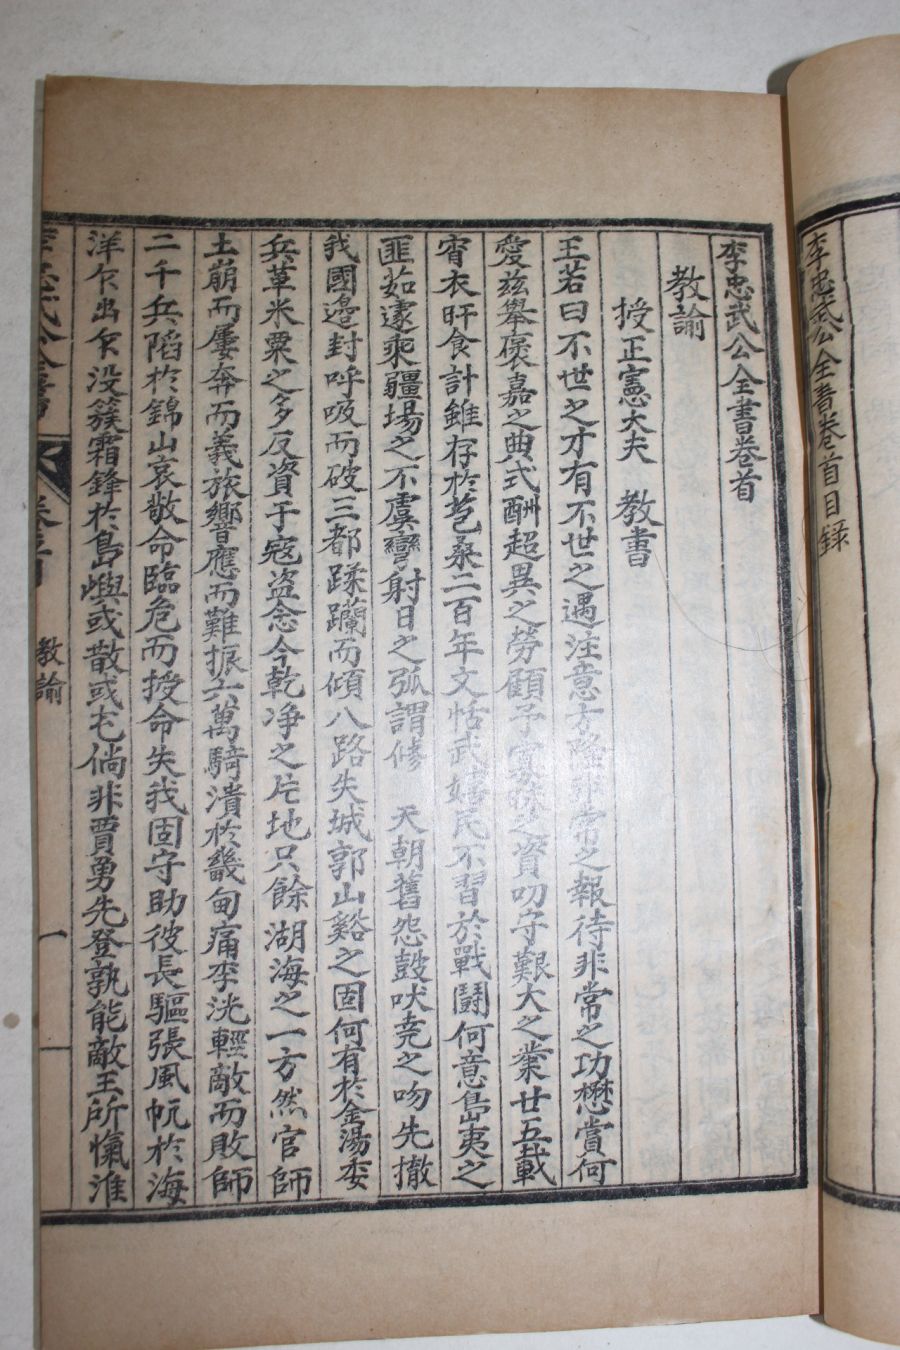 李忠武公全書卷首目録
李忠武公全書卷首
教諭
授正憲大夫 教書
王若曰不世之才有不世之遇注意方隆非常之報待非常之功懋賞何
愛玆舉褒嘉之典式酬超異之勞顧予寡昧之資叨守艱大之業廿五載
宵衣旰食計雖存於苞桑二百年文恬武嬉民不習於戰鬪何意島夷之
匪茹遽乘疆場之不虞彎射日之弧謂修 天朝舊怨鼓吠尭之吻先撤
我國邉封呼吸而破三都蹂躪而傾八路失城郭山谿之固何有於金湯委
兵革米粟之多反資于寇盗念今乾净之片地只餘湖海之一方然官師
土崩而屢奔而義旅嚮應而難振六萬騎潰於畿甸痛李洸輕敵而敗師
二千兵陷於錦山哀敬命臨危而授命失我固守助彼長驅張風帆於海
洋乍出乍没簇霜鋒於島嶼或散或屯倘非賈勇先登孰能敵王所愾淮
李忠武公全書 卷首 教諭 一